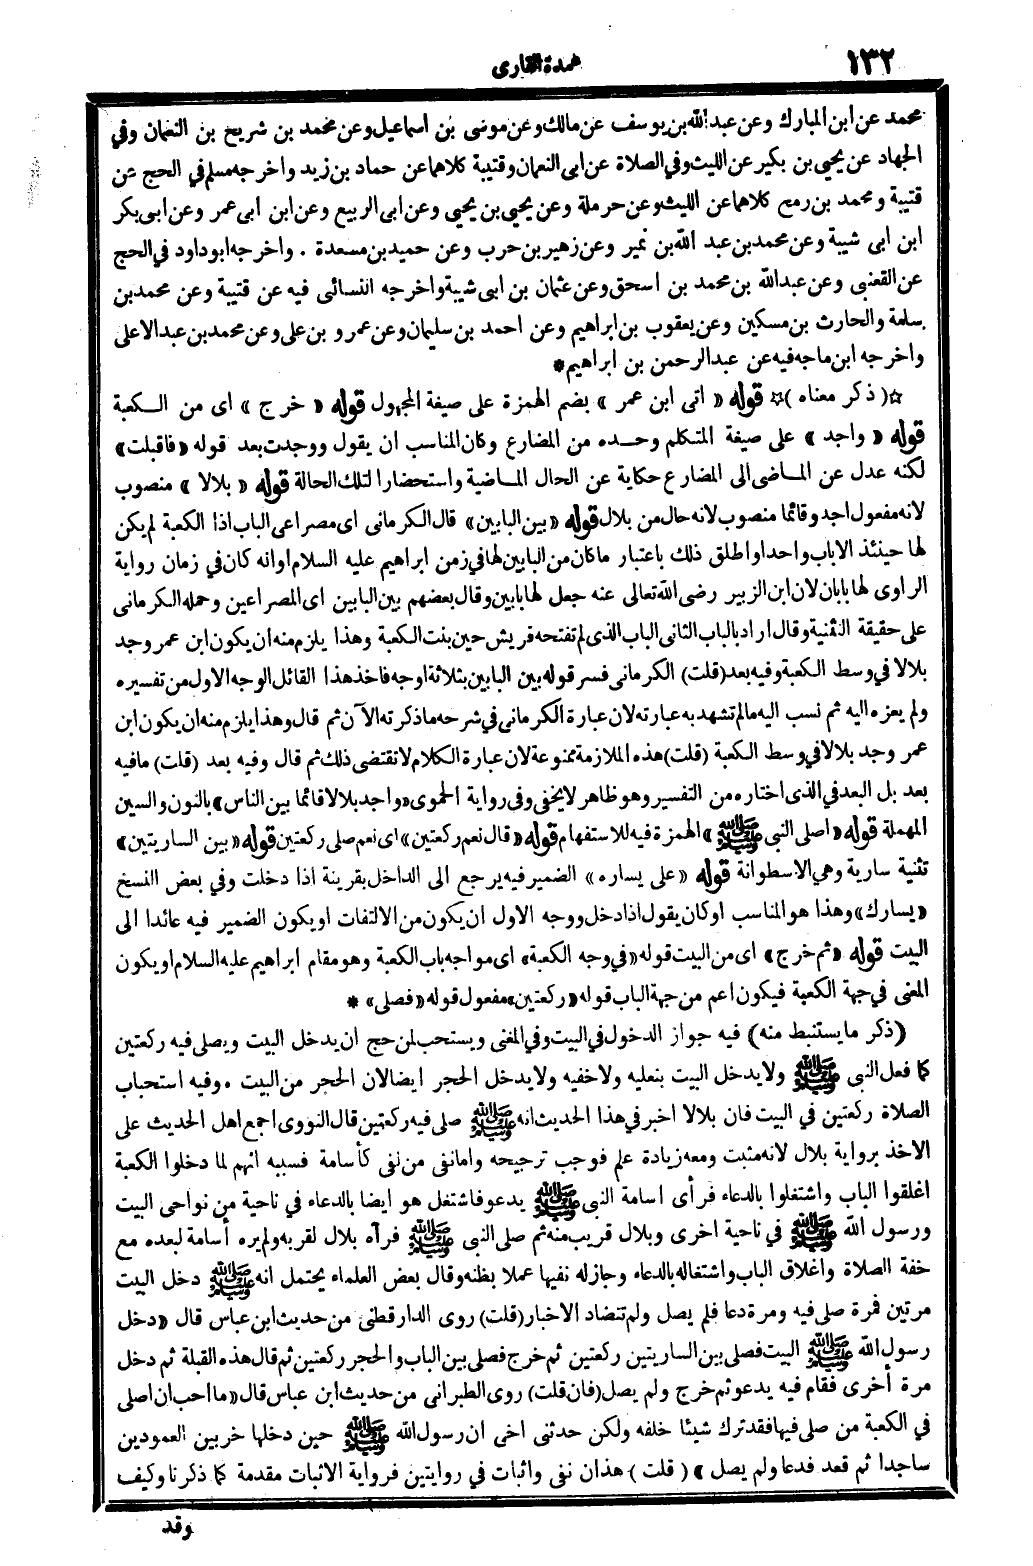 ١٣٢
عمدة القارى
محمد عن ابن المبارك وعن عبد الله بن يوسف عن مالك وعن موسى بن اسماعيل وعن محمد بن شريح بن النعمان وفي
الجهاد عن يحيى بن بكير عن الليث وفي الصلاة عن ابى النعمان وقتيبة كلاهما عن حماد بن زيد واخرجه مسلم في الحج عن
قتيبة ومحمد بن رمح كلاهما عن الليث وعن حرملة وعن يحيى بن يحيى وعن ابى الربيع وعن ابن ابى عمر وعن ابى بكر
ابن ابى شيبة وعن محمد بن عبد الله بن نمير وعن زهير بن حرب وعن حميد بن مسعدة . واخرجه ابو داود في الحج
عن القعنبى وعن عبدالله بن محمد بن اسحق وعن عثمان بن ابى شيبة واخرجه النسائى فيه عن قتيبة وعن محمد بن
سلمة والحارث بن مسكين وعن يعقوب بن ابراهيم وعن احمد بن سليمان وعن عمرو بن على وعن محمد بن عبد الاعلى
واخرجه ابن ماجه فيه عن عبدالرحمن بن ابراهيم *
☆( ذكر معناه )☆ قوله « اتى ابن عمر » بضم الهمزة على صيغة المجهول قوله « خرج » اى من الكعبة
قوله « واجد » على صيغة المتكلم وحده من المضارع وكان المناسب ان يقول ووجدت بعد قوله «فاقبلت»
لكنه عدل عن الماضى الى المضارع حكاية عن الحال الماضية واستحضارا لتلك الحالة قوله « بلالا » منصوب
لانه مفعول اجد وقائما منصوب لانه حال من بلال قوله «بين البابين» قال الكرمانى اى مصراعى الباب اذا الكعبة لم يكن
لها حينئذ الاباب واحد او اطلق ذلك باعتبار ما كان من البابين لها في زمن ابراهيم عليه السلام او انه كان في زمان رواية
الراوى لها بابان لان ابن الزبير رضى الله تعالى عنه جعل لها بابين وقال بعضهم بين البابين اى المصراعين وحمله الكرمانى
على حقيقة التثنية وقال اراد بالباب الثانى الباب الذى لم تفتحه قريش حين بنت الكعبة وهذا يلزم منه ان يكون ابن عمر وجد
بلالا في وسط الكعبة وفيه بعد (قلت) الكرمانى فسر قوله بين البابين بثلاثة اوجه فاخذ هذا القائل الوجه الاول من تفسيره
ولم يعزه اليه ثم نسب اليه مالم تشهد به عبارته لان عبارة الكرمانى في شرحه ما ذكرته الآن ثم قال وهذا يلزم منه ان يكون ابن
عمر وجد بلالا في وسط الكعبة (قلت) هذه الملازمة ممنوعة لان عبارة الكلام لا تقتضى ذلك ثم قال وفيه بعد (قلت) مافيه
بعد بل البعد في الذى اختاره من التفسير وهو ظاهر لا يخفى وفى رواية الحموى «واجد بلالا قائما بين الناس» بالنون والسين
المهملة قوله «اصلى النبى ﷺ» الهمزة فيه للاستفهام قوله «قال نعم ركعتين» اى نعم صلى ركعتين قوله «بين الساريتين»
تثنية سارية وهي الاسطوانة قوله «على يساره» الضمير فيه يرجع الى الداخل بقرينة اذا دخلت وفي بعض النسخ
«يسارك» وهذا هو المناسب او كان يقول اذا دخل ووجه الاول ان يكون من الالتفات او يكون الضمير فيه عائدا الى
البيت قوله «ثم خرج» اى من البيت قوله «في وجه الكعبة» اى مواجه باب الكعبة وهو مقام ابراهيم عليه السلام او يكون
المعنى في جهة الكعبة فيكون اعم من جهة الباب قوله «ركعتين» مفعول قوله «فصلى» *
(ذكر ما يستنبط منه) فيه جواز الدخول في البيت وفي المغنى ويستحب لمن حج ان يدخل البيت ويصلى فيه ركعتين
كما فعل النبى ﷺ ولا يدخل البيت بنعليه ولا خفيه ولا يدخل الحجر ايضا لان الحجر من البيت . وفيه استحباب
الصلاة ركعتين في البيت فان بلالا اخبر في هذا الحديث انه ﷺ صلى فيه ركعتين قال النووى اجمع اهل الحديث على
الاخذ برواية بلال لانه مثبت ومعه زيادة علم فوجب ترجيحه وامانفى من نفى كأسامة فسببه انهم لما دخلوا الكعبة
اغلقوا الباب واشتغلوا بالدعاء فرأى اسامة النبى ﷺ يدعو فاشتغل هو ايضا بالدعاء في ناحية من نواحى البيت
ورسول الله ﷺ في ناحية اخرى وبلال قريب منه ثم صلى النبى ﷺ فرآه بلال لقربه ولم يره أسامة لبعده مع
خفة الصلاة واغلاق الباب واشتغاله بالدعاء وجاز له نفيها عملا بظنه وقال بعض العلماء يحتمل انه ﷺ دخل البيت
مرتين فمرة صلى فيه ومرة دعا فلم يصل ولم تتضاد الاخبار (قلت) روى الدارقطنى من حديث ابن عباس قال «دخل
رسول الله ﷺ البيت فصلى بين الساريتين ركعتين ثم خرج فصلى بين الباب والحجر ركعتين ثم قال هذه القبلة ثم دخل
مرة أخرى فقام فيه يدعو ثم خرج ولم يصل (فان قلت) روى الطبرانى من حديث ابن عباس قال «ما احب ان اصلى
في الكعبة من صلى فيها فقد ترك شيئا خلفه ولكن حدثنى اخى ان رسول الله ﷺ حين دخلها خر بين العمودين
ساجدا ثم قعد فدعا ولم يصل » ( قلت ) هذان نفى واثبات في روايتين فرواية الاثبات مقدمة كما ذكرنا وكيف
وقد